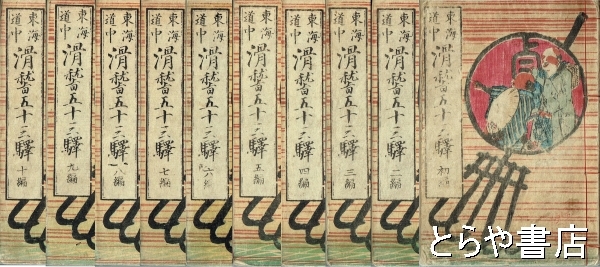 東海
道中
滑稽五十三驛
初編
東海
道中
滑稽五十三驛
二編
東海
道中
滑稽五十三驛
三編
東海
道中
滑稽五十三驛
四編
東海
道中
滑稽五十三驛
五編
東海
道中
滑稽五十三驛
六編
東海
道中
滑稽五十三驛
七編
東海
道中
滑稽五十三驛
八編
東海
道中
滑稽五十三驛
九編
東海
道中
滑稽五十三驛
十編
とらや書店